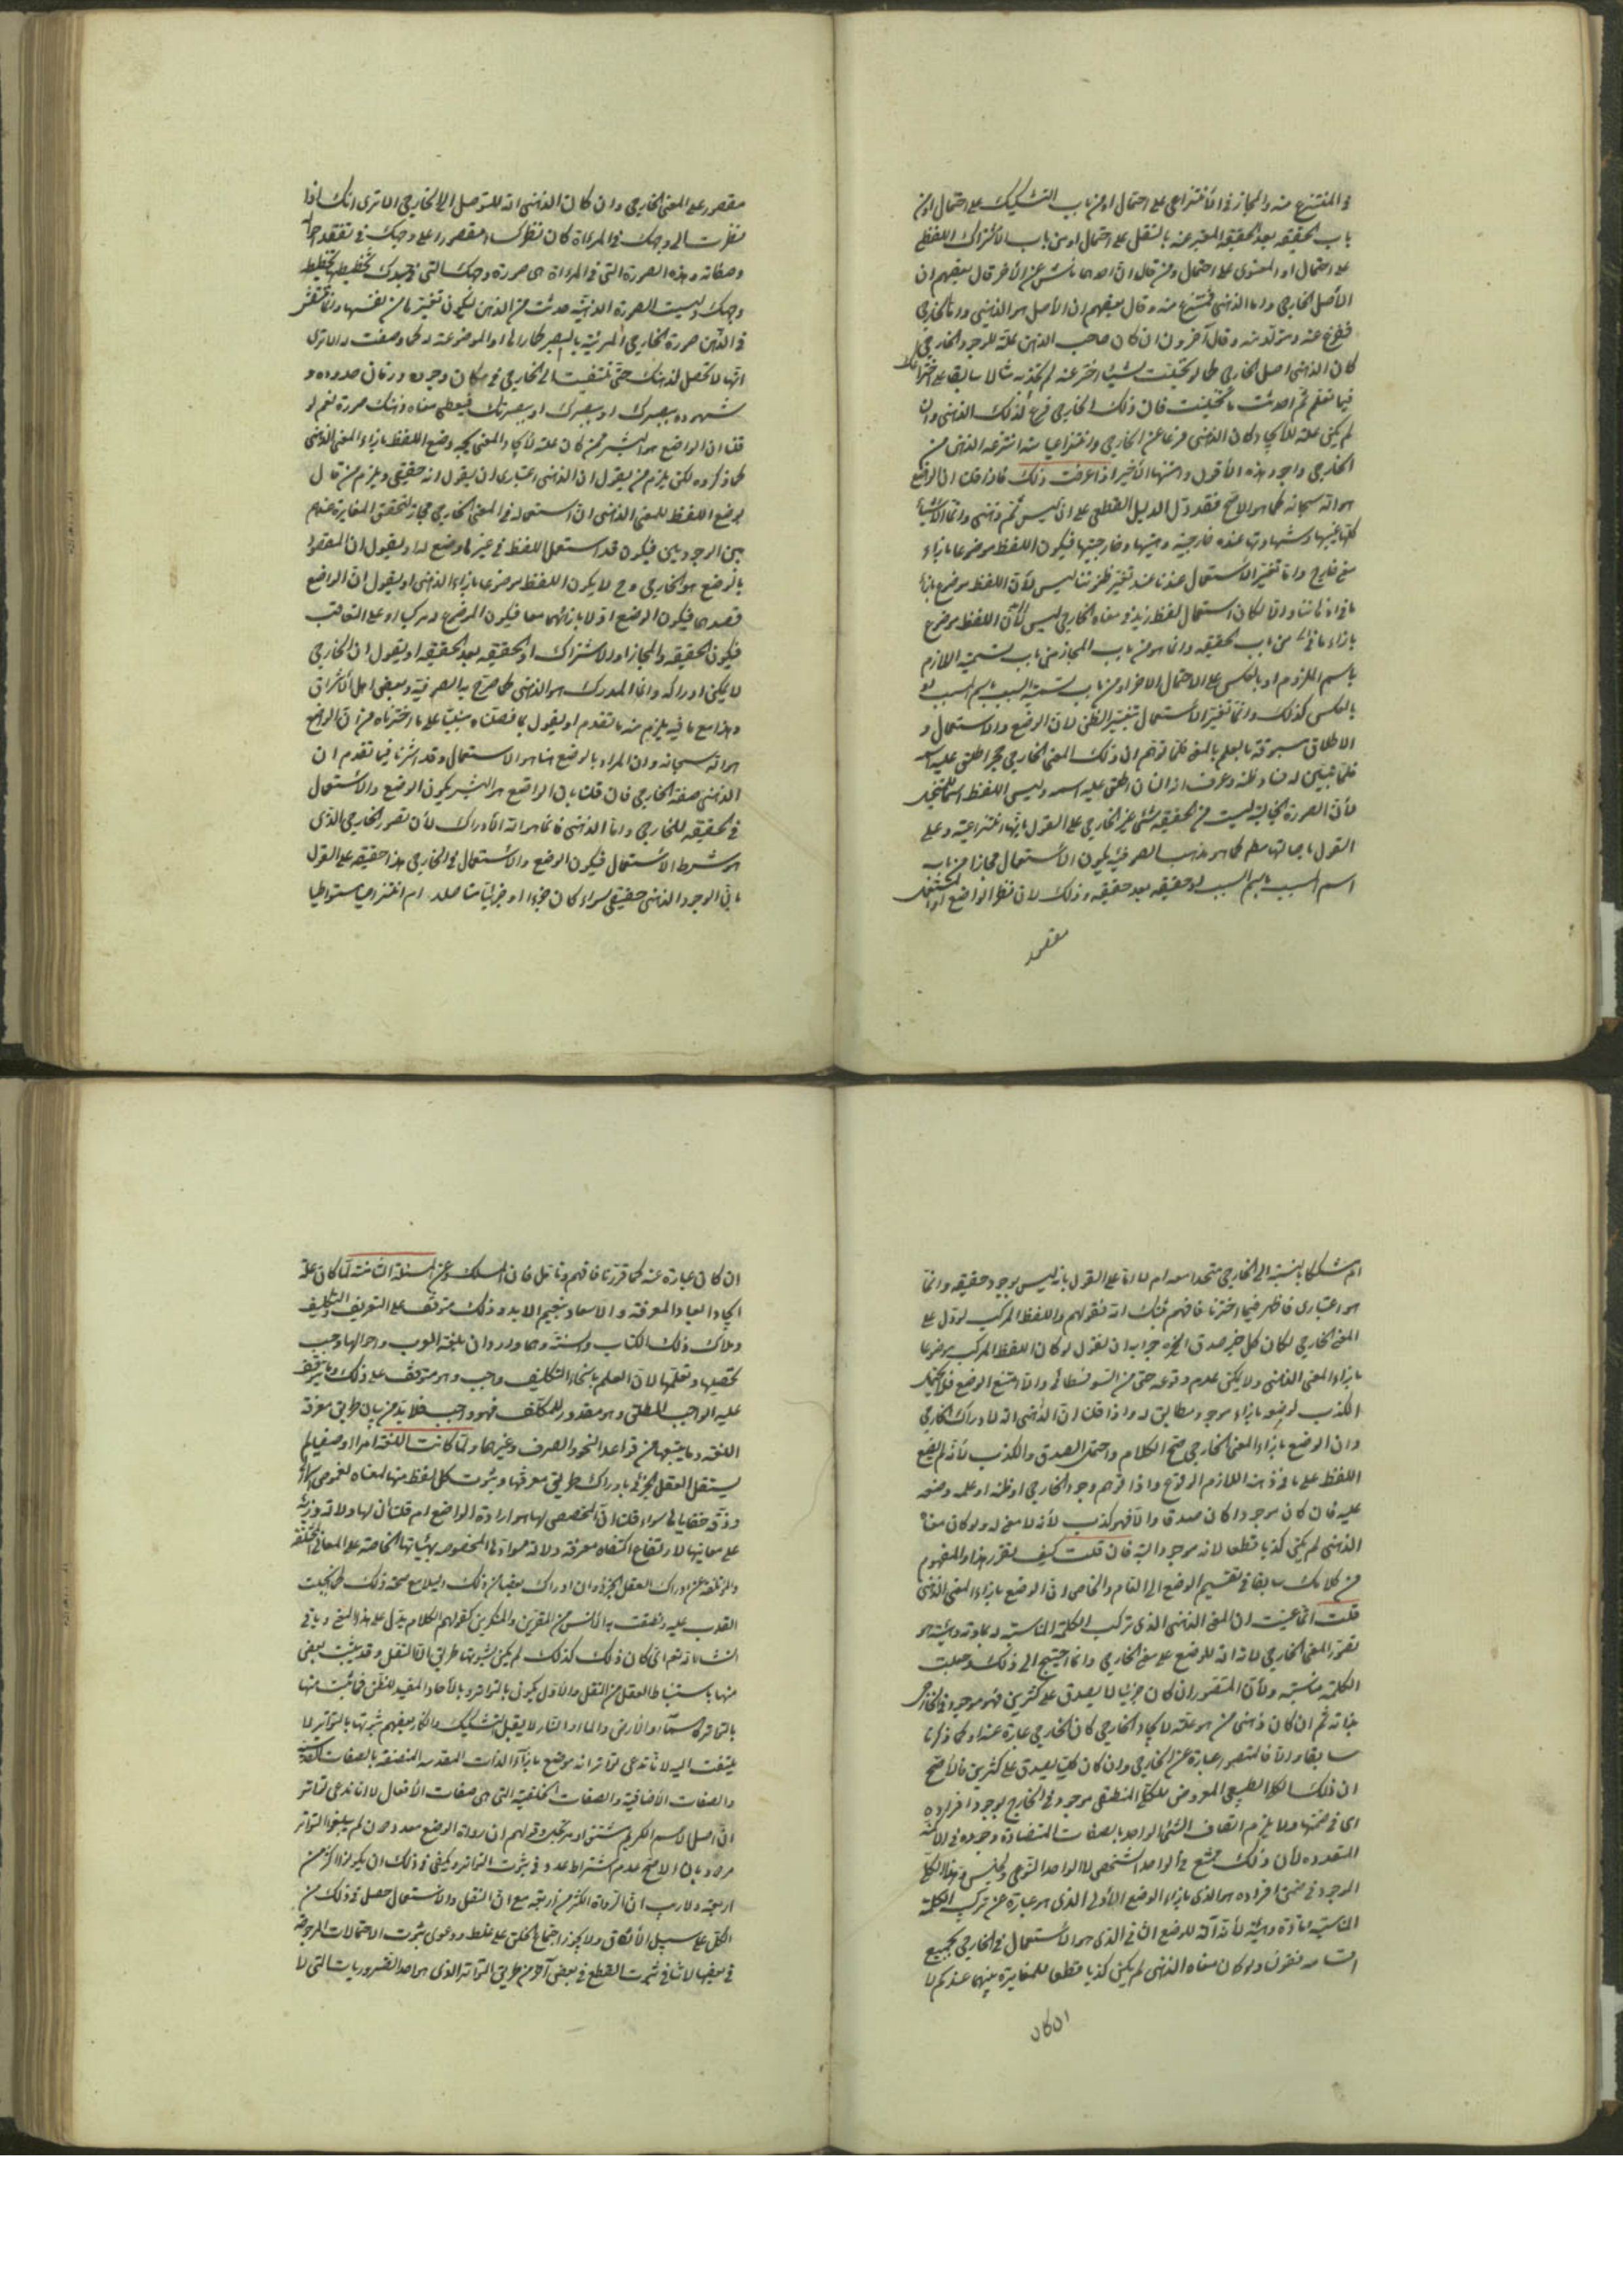 في المنتزع منه والمجاز في الانتزاعي على احتمال او من باب التشكيك على احتمال او من
باب الحقيقة بعد الحقيقة المعبر عنه بالنقل على احتمال او من باب الاشتراك اللفظي
على احتمال او المعنوي على احتمال ومن قال ان احدهما ناش عن الاخر قال بعضهم ان
الأصل الخارجي واما الذهني فمنتزع منه وقال بعضهم ان الأصل هو الذهني واما الخارجي
فرع عنه ومتولد منه وقال آخرون ان كان صاحب الذهن علة للوجود الخارجي
كان الذهني اصل الخارجي كما لو تخيلت شيئا اخترعته لم تحذ به مثالا سابقا على
فيما تعلم ثم احدثت ما تخيلت فان ذلك الخارجي فرع لذلك الذهني وان
لم يكن علة للايجاد كان الذهني فرعا عن الخارجي وانتزاعيا منه انتزعه الذهن من
الخارجي واجود هذه الأقوال وامتنها الأخير اذا عرفت ذلك فاذا قلت ان الواضع
هو الله سبحانه كما هو الاصح فقد دل الدليل القطعي على ان ليس ثم ذهني وانما الأشياء
كلها غيبها وشهادتها عنده خارجية وعينها وخارجيتها فيكون اللفظ موضوعا بازاء
معنى خارج وانما تغير الاستعمال عندنا عند تغير ظنوننا ليس لأن اللفظ موضوع بازاء
ما في اذهاننا والا لكان استعمال لفظ زيد في معناه الخارجي ليس لأن اللفظ موضوع
بازاء من باب الحقيقة وانما هو من باب المجاز من باب تسمية اللازم
باسم الملزوم او بالعكس على الاحتمال الاخر او من باب تسمية السبب باسم المسبب او
بالعكس كذلك وانما تغير الأستعمال بتغير الظن لان الوضع والاستعمال و
الاطلاق مسبوقة بالعلم بالمعنى فلما توهم ان ذلك المعنى الخارجي حجر اطلق عليه اسمه
فلما تبين له فساد ظنه وعرف انه انسان اطلق عليه اسمه وليس اللفظ اسما للمتخيل
لأن الصورة الخيالية ليست في الحقيقة شيء غير الخارجي على القول بانها انتزاعية وعلى
القول باصالتها كما هو مذهب الصوفية يكون الأستعمال مجازا من باب
اسم المسبب باسم السبب او حقيقة بعد حقيقة وذلك لان نظر الواضع
مقصور
مقصور على المعنى الخارجي وان كان الذهني آلة للتوصل الى الخارجي الا ترى انك اذا
نظرت الى وجهك في المرءاة كان نظرك مقصورا على وجهك في تفقد
وصفاته وهذه الصورة التي في المرءاة هي صورة وجهك التي
وجهك وليست الصورة الذهنية حدثت من الذهن ليكون تغيرها من نفسها وانما
في الذهن صورة الخارجي المرئية بالبصر كما رأى او الموضوعة له كما وصفت له الا ترى
انها لا تحصل لذهنك حتى تلتفت الى الخارجي في مكان وجوده وزمان حدوده و
شهوده ببصرك او ببصيرتك فيعطي معناه ذهنك صورة نعم لو
قلنا ان الواضع هو البشر فمن كان علة لايجاد المعنى يجب وضع اللفظ بازاء المعنى الذهني
كما ذكروه لكن يلزم من يقول ان الذهني اعتباري ان يقول انه حقيقي ويلزم من قال
بوضع اللفظ للمعنى الذهني ان استعماله في المعنى الخارجي مجاز لتحقق المغايرة عندهم
بين الوجودين فيكون قد استعمل اللفظ في غير ما وضع له او يقول ان المقصود
بالوضع هو الخارجي وح لا يكون اللفظ موضوعا بازاء الذهني او يقول ان الواضع
قصدهما فيكون الوضع اولا بازائهما معا فيكون الموضوع له مركبا او على التعاقب
فيكون الحقيقة والمجاز او الاشتراك او الحقيقة بعد الحقيقة او يقول ان الخارجي
لا يمكن ادراكه وانما المدرك هو الذهني كما صرح به الصوفية وبعض اهل الأشراق
وهذا مع ما فيه يلزم منه ما تقدم او يقول بما فصلناه مبنيا على ما اخترناه من ان الواضع
هو الله سبحانه وان المراد بالوضع هنا هو الاستعمال وقد اشرنا فيما تقدم ان
الذهني صفة الخارجي فان قلت بان الواضع هو البشر يكون الوضع والاستعمال
في الحقيقة للخارجي واما الذهني فانما هو آلة الادراك لأن تصور الخارجي الذي
هو شرط الاستعمال فيكون الوضع والاستعمال في الخارجي هذا حقيقة على القول
بان الوجود الذهني حقيقي سواء كان جزءا او جزئيا متاصلا ام انتزاعيا متواطيا
ام مشككا بالنسبة الى الخارجي متحدا معه ام لا اما على القول بانه ليس بوجود حقيقة وانما
هو اعتباري فاظهر فيما اخترنا فافهم فقولهم واللفظ المركب لو دل على
المعنى الخارجي لكان كل خبر صدق الخ جوابه ان نقول لو كان اللفظ المركب موضوعا
بازاء المعنى الذهني ولا يمكن عدم وقوعه حتى من السوفسطائي والا امتنع الوضع فلا يمكن
الكذب لوضعه بازاء موجود مطابق له واذا قلنا ان الذهني آلة لادراك الخارجي
وان الوضع بازاء المعنى الخارجي صح الكلام واحتمل الصدق والكذب لانه لم يضع
اللفظ على ما في ذهنه اللازم الوقوع واذا توهم وجود الخارجي او ظنه او علمه وضعه
عليه فان كان موجودا كان صدقا والا فهو كذب لأنه لا معنى له ولو كان معناه
الذهني لم يكن كذبا قطعا لانه موجود البتة فان قلت كيف تقرر هذا والمفهوم
من كلامك سابقا في تقسيم الوضع الى العام والخاص ان الوضع بازاء المعنى الذهني
قلت انما عنيت ان المعنى الذهني الذي تركب الكلمة المناسبة له بمادته وهيئته هو
تصور المعنى الخارجي لانه آلة للوضع على معنى الخارجي وانما احتيج الى ذلك وجعلت
الكلمة مناسبة ولأن المتصور ان كان جزئيا لا يصدق على كثيرين فهو موجود في الخارج
بذاته ثم ان كان ذهني من هو علة لايجاد الخارجي كان الخارجي عبارة عنه كما ذكرنا
سابقا والا فالمتصور عبارة عن الخارجي وان كان كليا يصدق على كثيرين فالأصح
ان ذلك الكلي الطبيعي المعروض للكلي المنطقي موجود في الخارج بوجود افراده
اي في ضمنها ولا يلزم اتصاف الشئ الواحد بالصفات المتضادة ووجوده في الامكنة
المتعددة لأن ذلك ممتنع في الواحد الشخصي لا الواحد النوعي والجنسي وهذا الكلي
الموجود في ضمن افراده هو الذي بازاء الوضع الأولي الذي هو عبارة عن تركيب الكلمة
المناسبة مادة وهيئة لأنه آلة للوضع الثاني الذي هو الأستعمال في الخارجي بجميع
اقسامه فنقول ولو كان معناه الذهني لم يكن كذبا قطعا للمغايرة بينهما عندكم لا
ان كان
ان كان عبارة عنه كما قررنا فافهم وتامل فان المسلك وعر المسئلة الثامنة لما كان علة
ايجاد العباد المعرفة والاسعاد بنعيم الابد وذلك متوقف على التعريف والتكليف
وملاك ذلك الكتاب والسنة وهما واردان بلغة العرب واحوالها وجب
تحصيلها وتعلمها لان العلم بانحاء التكليف واجب وهو متوقف على ذلك وما يتوقف
عليه الواجب المطلق وهو مقدور للمكلف فهو واجب فلا بد من بيان طريق معرفة
اللغة وما يتبعها من قواعد النحو والصرف وغيرها ولما كانت اللغة امرا وضعيا لم
يستقل العقل الجزئي بادراك طريق معرفتها وثبوت كل لفظ منها لمعناه لغموض
ودقة خفاياه سواء قلنا ان المخصص لها هو ارادة الواضع ام قلنا ان لها دلالة ذاتية
على معانيها لارتفاع اكتناه معرفة دلالة موادها المخصوصة بهيئاتها الخاصة على المعاني المختلفة
والمؤتلفة عن ادراك العقل الجزئي وان ادراك بعضا من ذلك دليلا مع صحة ذلك كما جبلت
القلوب عليه ونطقت به الالسن من المقرين والمنكرين كقولهم الكلام يدل على هذا المعنى وياتي
انشاء الله تعالى كان ذلك كذلك لم يكن لثبوتها طريق الا النقل وقد يثبت بعض
منها باستنباط العقل من النقل والاول يكون بالتواتر وبالأحاد المفيد للظن فما ثبت منها
بالتواتر كالسماء والأرض والماء والنار لا يقبل التشكيك وانكار بعضهم ثبوتها بالتواتر لا
يلتفت اليه لأنا ندعي تواتر انه موضوع بازاء الذات المقدسة المتصفة بالصفات
والصفات الأضافية والصفات الخلقية التي هي صفات الأفعال لا انا ندعي تواتر
ان اصل الاسم الكريم مشتق او مرتجل وقولهم ان رواة الوضع معدودون لم يبلغوا التواتر
مردود بان الاصح عدم اشتراط عدد في ثبوت التواتر ويكفي في ذلك ان يكونوا اكثر من
اربعة ولا ريب ان الرواة اكثر من اربعة مع ان النقل والاستعمال حصل في ذلك من
الكل على سبيل الأتفاق ولا يجوز اجتماع الخلق على غلط ودعوى ثبوت الاحتمالات المرجوحة
في بعضها لا تنافي ثبوت القطع في بعض آخر من طريق التواتر الذي هو احد الضروريات التي لا